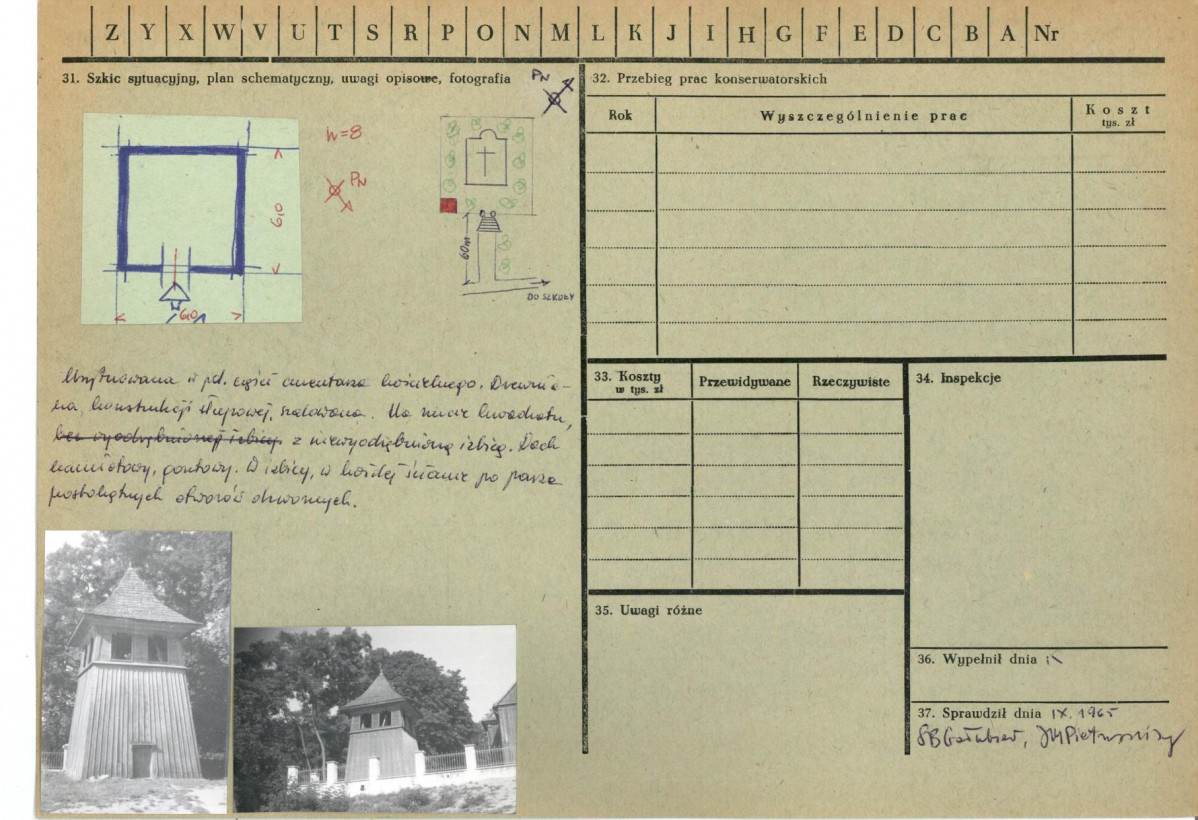 Z Y X W V U T S R P O N M L K J I H G F E D C B A Nr
31. Szkic sytuacyjny, plan schematyczny, uwagi opisowe, fotografia
PN
h=8
PN
6,0
6,0
60m
DO SZKOŁY
Usytuowana w pd. części cmentarza kościelnego. Drewnia-
na, konstrukcji słupowej, szalowana. Na rzucie kwadratu,
bez wyodrębnionej izbicy z niewyodrębnioną izbicą. Dach
namiotowy, gontowy. W izbicy, w każdej ścianie po parze
prostokątnych otworów dzwonnych.
32. Przebieg prac konserwatorskich
Rok
Wyszczególnienie prac
Koszt
tys. zł
33. Koszty
w tys. zł
Przewidywane
Rzeczywiste
34. Inspekcje
35. Uwagi różne
36. Wypełnił dnia
37. Sprawdził dnia IX. 1965